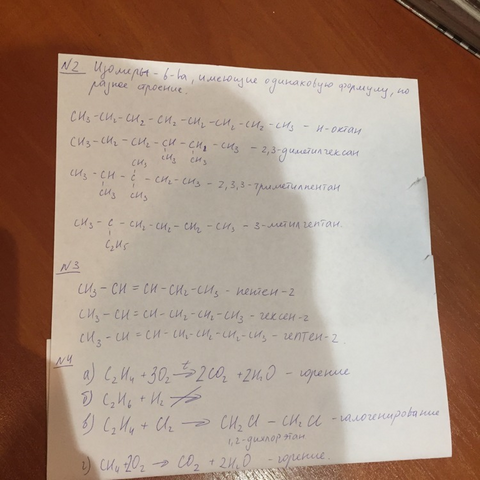 N2 Изомеры - в-ва, имеющие одинаковую формулу, но
разное строение.
CH3 - CH2 - CH2 - CH2 - CH2 - CH2 - CH2 - CH3 - н-октан
CH3 - CH2 - CH2 - CH - CH2 - CH3 - 2,3-диметилгексан
CH3 CH3
CH3
CH3 - CH - C - CH2 - CH3 - 2,3,3-триметилпентан
CH3 CH3
CH3 - C - CH2 - CH2 - CH2 - CH3 - 3-метилгептан.
C2H5
N3
CH3 - CH = CH - CH2 - CH3 - пентен-2
CH3 - CH = CH - CH2 - CH2 - CH3 - гексен-2
CH3 - CH = CH - CH2 - CH2 - CH2 - CH3 - гептен-2.
N4
а) C2H4 + 3O2 t→ 2CO2 + 2H2O - горение
б) C2H6 + H2 ↛
в) C2H4 + Cl2 → CH2Cl - CH2Cl - галогенирование
1,2-дихлорэтан
г) CH4 + 2O2 → CO2 + 2H2O - горение.